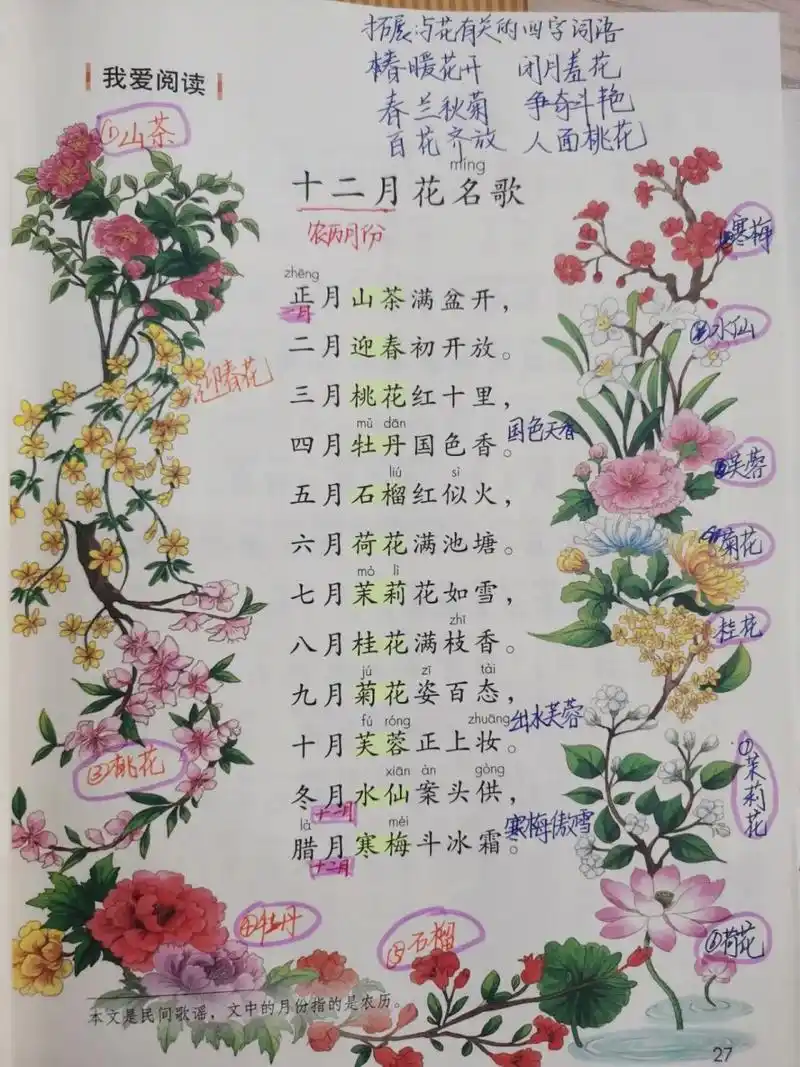 拓展与花有关的四字词语
春暖花开 闭月羞花
春兰秋菊 争奇斗艳
百花齐放 人面桃花
我爱阅读
①山茶
míng
十二月花名歌
农历月份
zhēng
正月山茶满盆开，
一月
二月迎春初开放。
迎春花
三月桃花红十里，
mǔ dān
四月牡丹国色香。
国色天香
liú sì
五月石榴红似火，
六月荷花满池塘。
mò lì
七月茉莉花如雪，
zhī
八月桂花满枝香。
jú zī tài
九月菊花姿百态，
fú róng zhuāng
十月芙蓉正上妆。
出水芙蓉
xiān àn gòng
冬月水仙案头供，
十一月
là méi
腊月寒梅斗冰霜。
寒梅傲雪
十二月
寒梅
水仙
芙蓉
菊花
桂花
⑦茉莉花
⑥荷花
③桃花
④牡丹
⑤石榴
本文是民间歌谣，文中的月份指的是农历。
27